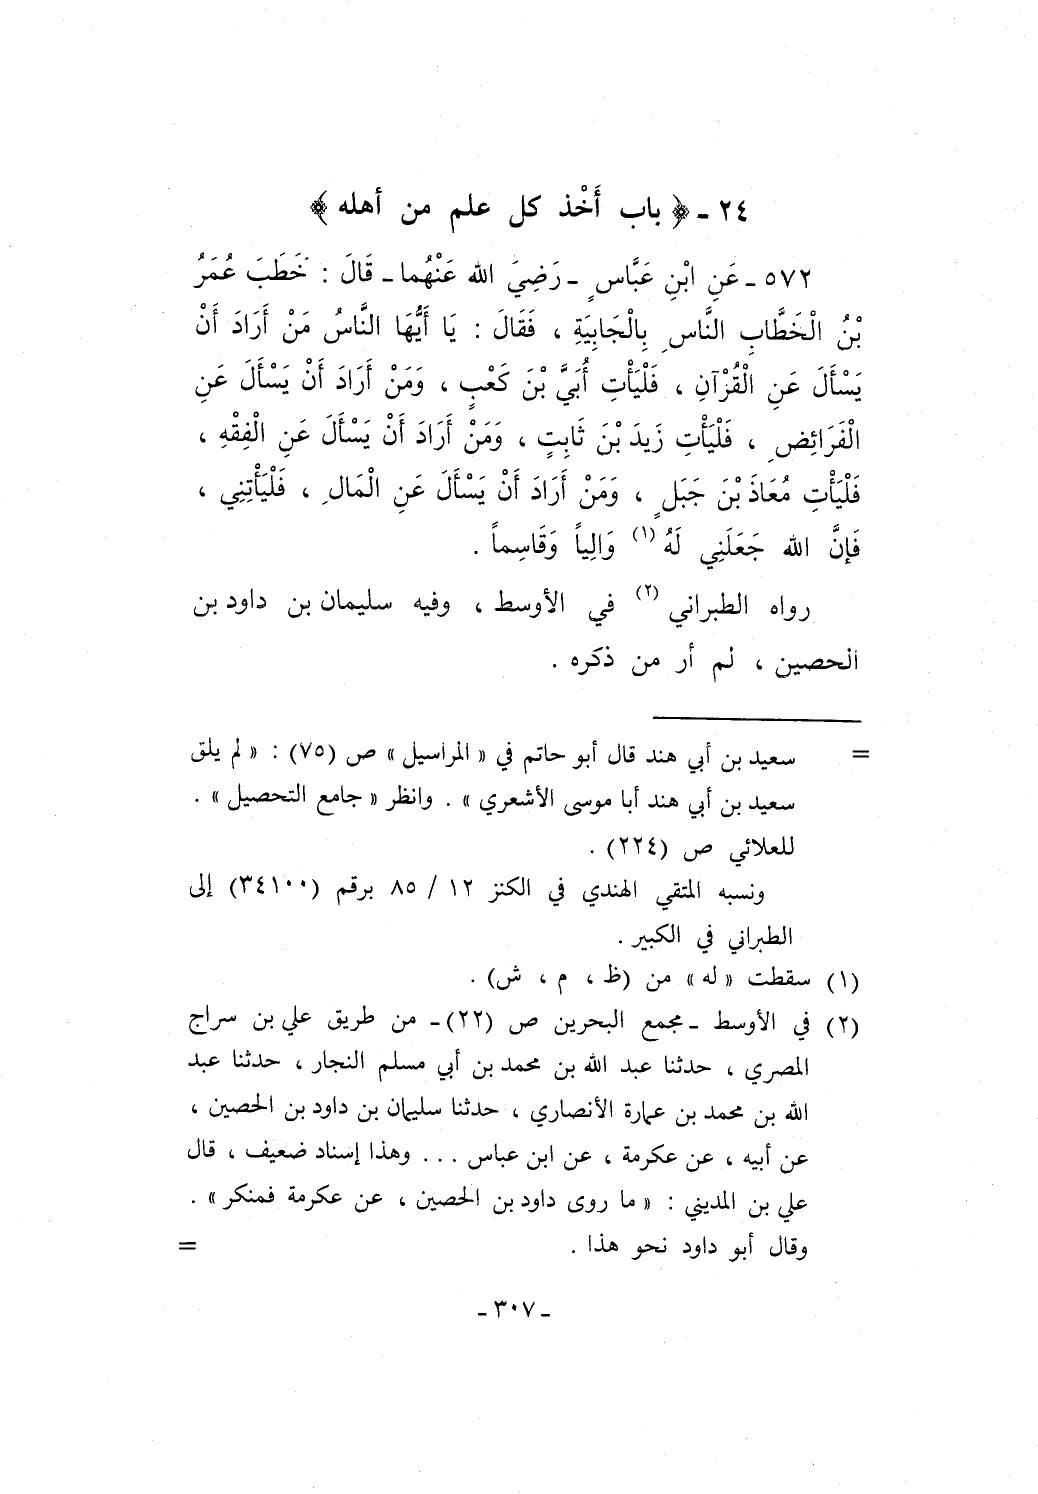 ٢٤ - ﴿ باب أَخْذ كل علم من أهله ﴾
٥٧٢ - عَنِ ابْنِ عَبَّاسٍ - رَضِيَ الله عَنْهُما - قَالَ : خَطَبَ عُمَرُ
بْنُ الْخَطَّابِ النَّاسِ بِالْجَابِيَةِ ، فَقَالَ : يَا أَيُّهَا النَّاسُ مَنْ أَرَادَ أَنْ
يَسْأَلَ عَنِ الْقُرْآنِ ، فَلْيَأْتِ أُبَيَّ بْنَ كَعْبٍ ، وَمَنْ أَرَادَ أَنْ يَسْأَلَ عَنِ
الْفَرَائِضِ ، فَلْيَأْتِ زَيدَ بْنَ ثَابِتٍ ، وَمَنْ أَرَادَ أَنْ يَسْأَلَ عَنِ الْفِقْهِ ،
فَلْيَأْتِ مُعَاذَ بْنَ جَبَلٍ ، وَمَنْ أَرَادَ أَنْ يَسْأَلَ عَنِ الْمَالِ ، فَلْيَأْتِنِي ،
فَإِنَّ الله جَعَلَنِي لَهُ (١) وَالِياً وَقَاسِماً .
رواه الطبراني (٢) في الأوسط ، وفيه سليمان بن داود بن
الحصين ، لم أر من ذكره .
= سعيد بن أبي هند قال أبو حاتم في « المراسيل » ص (٧٥) : « لم يلق
سعيد بن أبي هند أبا موسى الأشعري » . وانظر « جامع التحصيل » .
للعلائي ص (٢٢٤) .
ونسبه المتقي الهندي في الكنز ١٢ / ٨٥ برقم (٣٤١٠٠) إلى
الطبراني في الكبير .
(١) سقطت « له » من (ظ ، م ، ش) .
(٢) في الأوسط - مجمع البحرين ص (٢٢) - من طريق علي بن سراج
المصري ، حدثنا عبد الله بن محمد بن أبي مسلم النجار ، حدثنا عبد
الله بن محمد بن عمارة الأنصاري ، حدثنا سليمان بن داود بن الحصين ،
عن أبيه ، عن عكرمة ، عن ابن عباس ... وهذا إسناد ضعيف ، قال
علي بن المديني : « ما روى داود بن الحصين ، عن عكرمة فمنكر » .
وقال أبو داود نحو هذا . =
- ٣٠٧ -